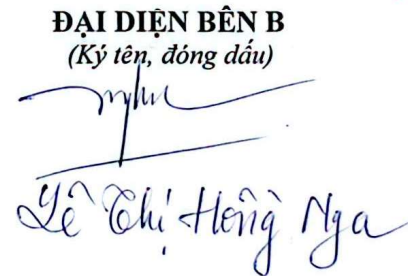 ĐẠI DIỆN BÊN B
(Ký tên, đóng dấu)
Lê Thị Hồng Nga